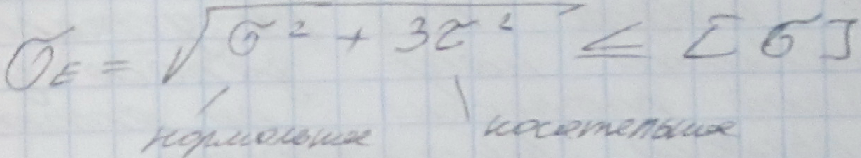 σE = √σ² + 3τ² ≤ [σ]
нормальные касательные